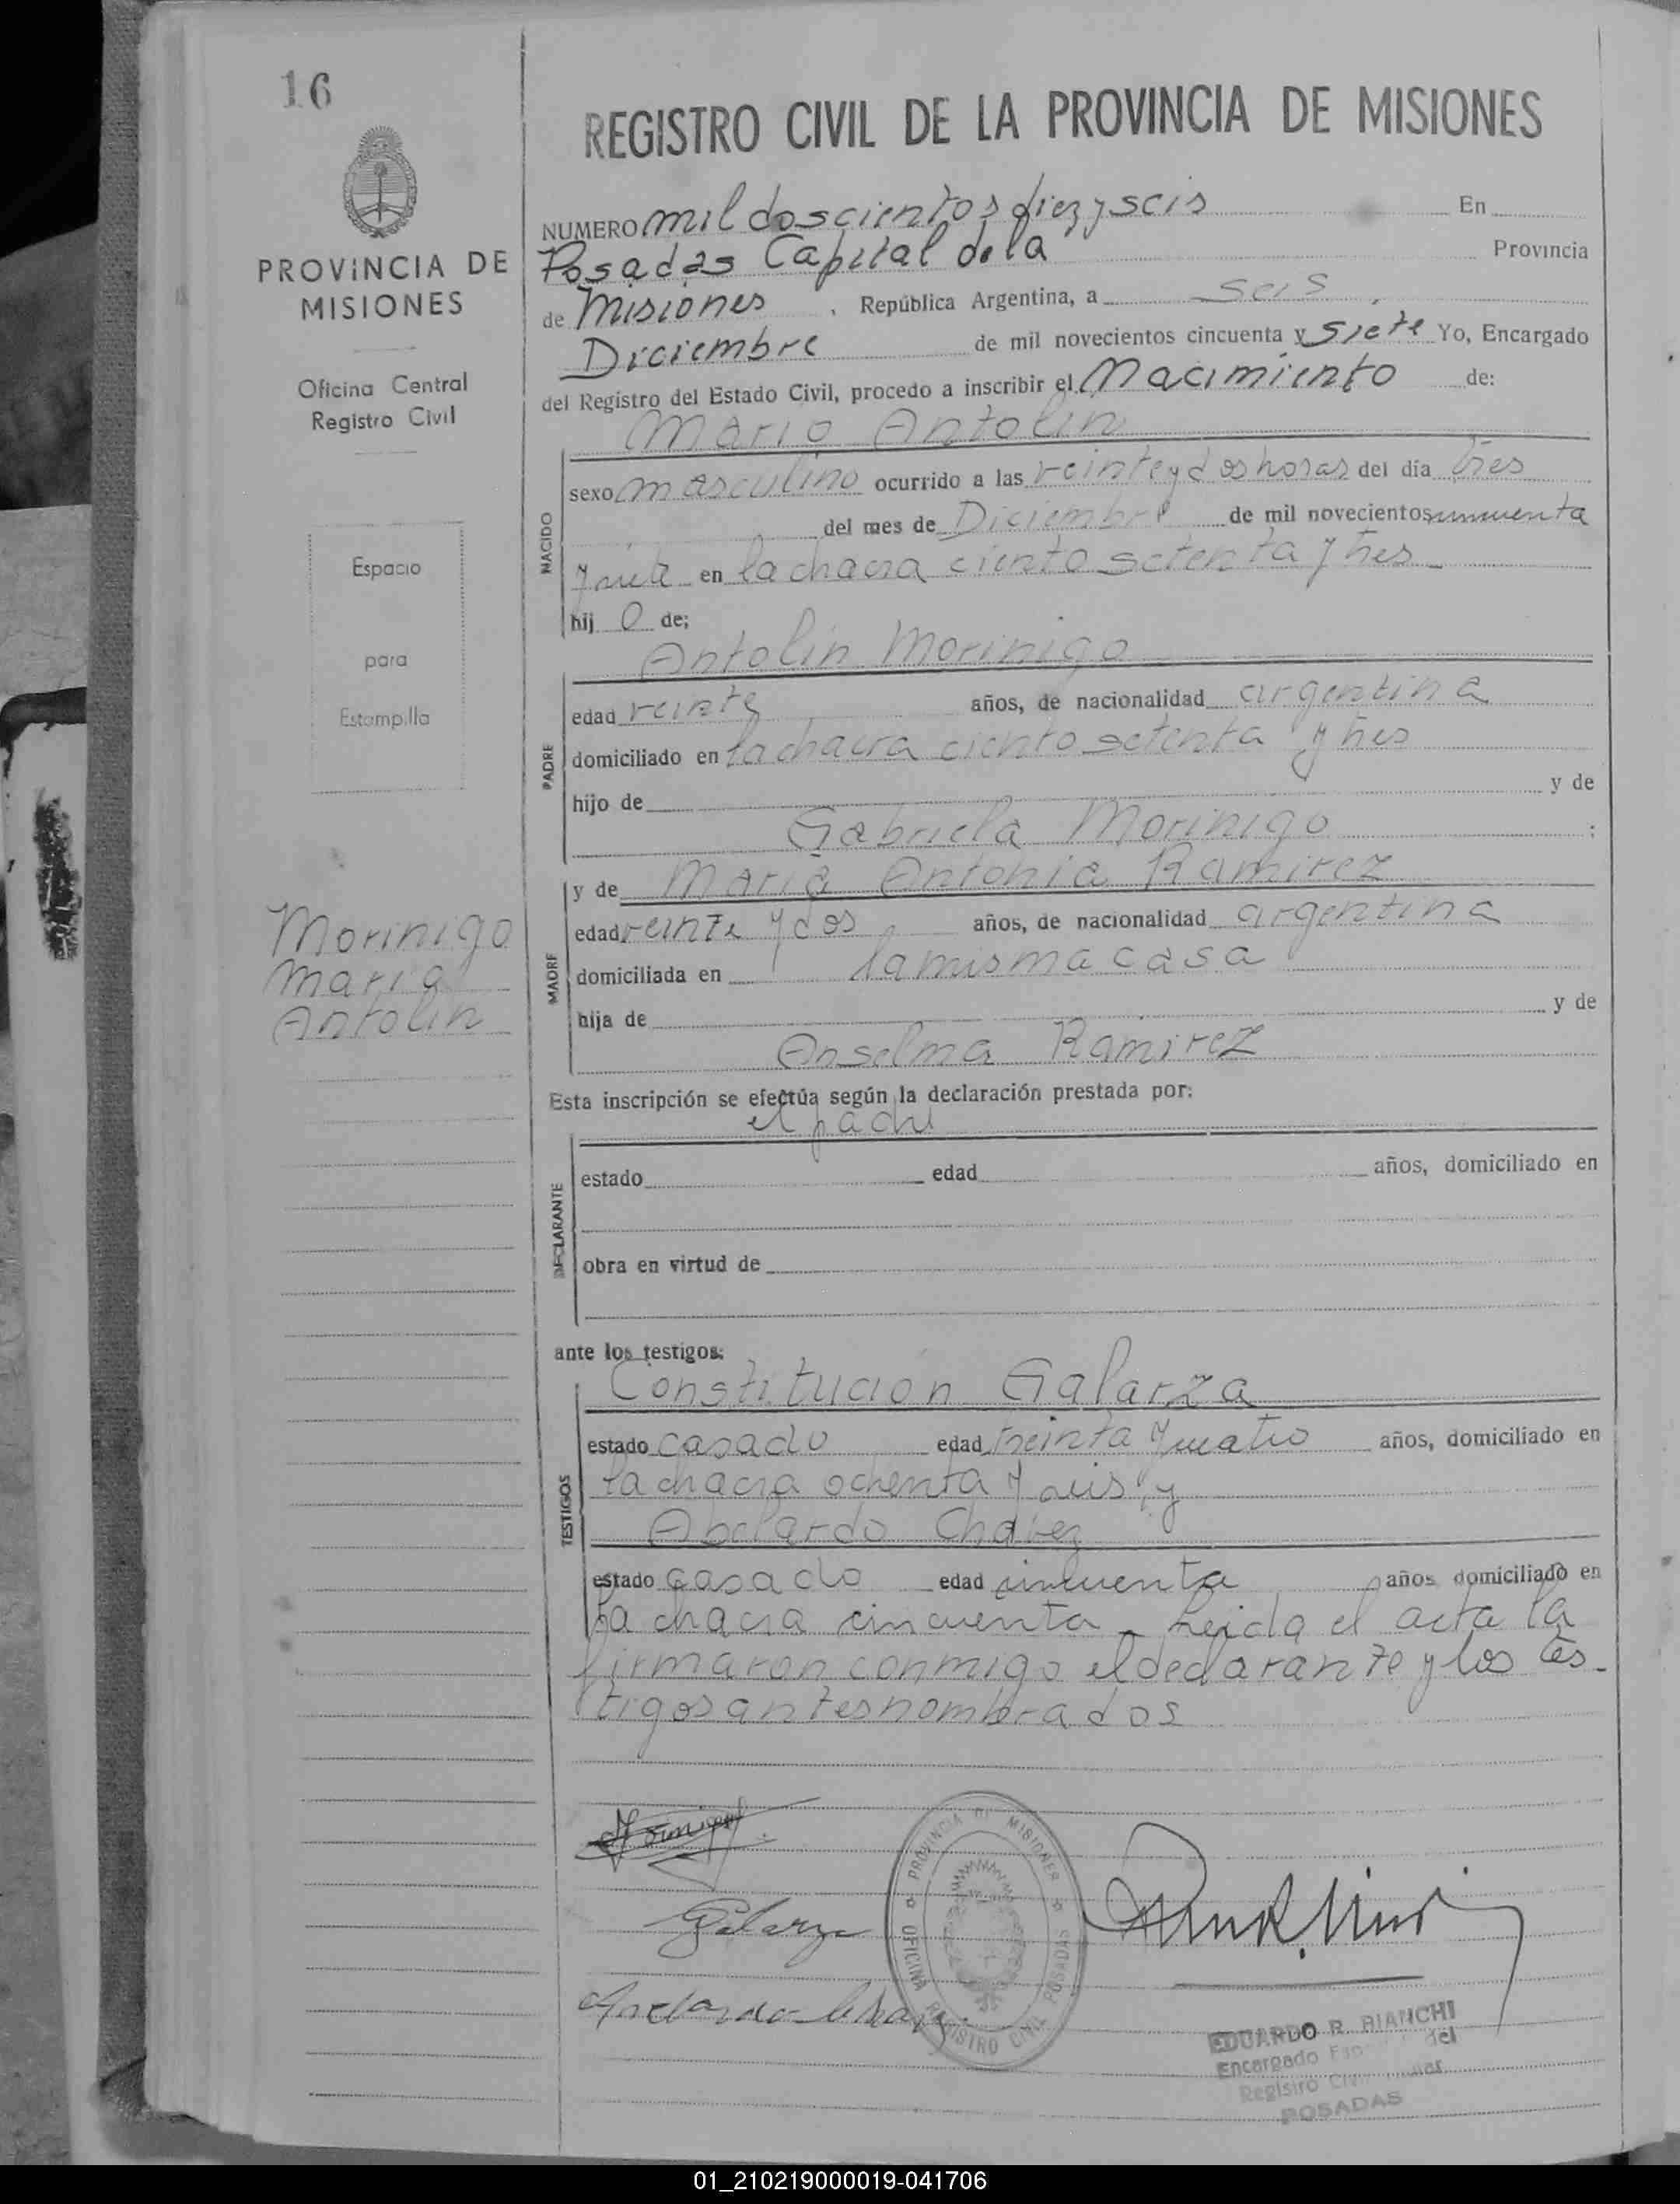 16
PROVINCIA DE
MISIONES
Oficina Central
Registro Civil
Espacio
para
Estampilla
Morinigo
Mario
Antolin
REGISTRO CIVIL DE LA PROVINCIA DE MISIONES
NUMERO mil doscientos diez y seis En
Posadas Capital de la Provincia
de Misiones, República Argentina, a seis
Diciembre de mil novecientos cincuenta y siete Yo, Encargado
del Registro del Estado Civil, procedo a inscribir el Nacimiento de:
Mario Antolin
NACIDO
sexo masculino ocurrido a las veinte y dos horas del día tres
del mes de Diciembre de mil novecientos cincuenta
y siete en la chacra ciento setenta y tres
hij o de;
Antolin Morinigo
PADRE
edad veinte años, de nacionalidad argentina
domiciliado en la chacra ciento setenta y tres
hijo de y de
Gabriela Morinigo ;
y de Maria Antonia Ramirez
MADRE
edad veinte y dos años, de nacionalidad argentina
domiciliada en la misma casa
hija de y de
Anselma Ramirez
Esta inscripción se efectúa según la declaración prestada por:
el padre
DECLARANTE
estado edad años, domiciliado en
obra en virtud de
ante los testigos:
Constitución Galarza
TESTIGOS
estado casado edad treinta y cuatro años, domiciliado en
la chacra ochenta y seis y
Abelardo Chavez
estado casado edad cincuenta años domiciliado en
la chacra cincuenta - Leida el acta la
firmaron conmigo el declarante y los tes-
tigos antes nombrados
Galarza
PROVINCIA DE MISIONES
OFICINA REGISTRO CIVIL POSADAS
EDUARDO R. BIANCHI
Encargado del
Registro
POSADAS
01_210219000019-041706